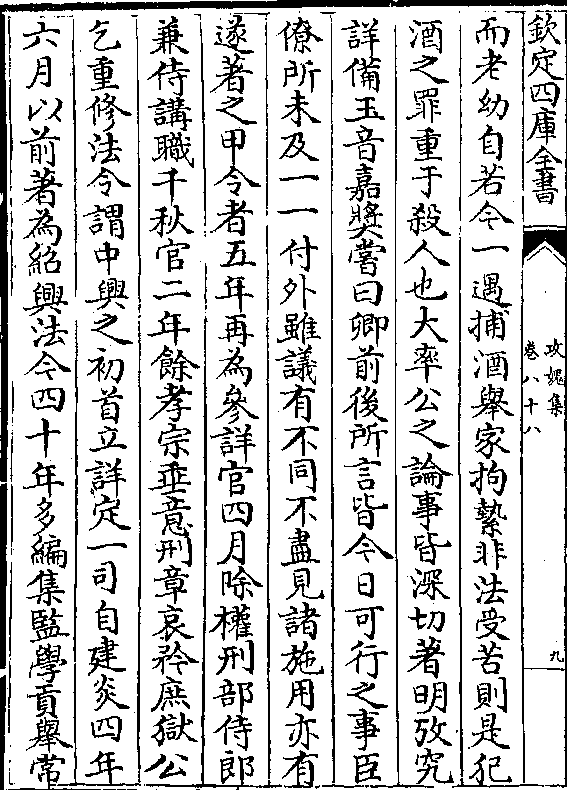 欽定四庫全書
攻媿集
卷八十八
九
而老幼自若今一遇捕酒舉家拘縶非法受苦則是犯
酒之罪重于殺人也大率公之論事皆深切著明攷究
詳備玉音嘉奬嘗曰卿前後所言皆今日可行之事臣
僚所未及一一付外雖議有不同不盡見諸施用亦有
遂著之甲令者五年再為參詳官四月除權刑部侍郎
兼侍講職千秋官二年餘孝宗垂意刑章哀矜庶獄公
乞重修法令謂中興之初首立詳定一司自建炎四年
六月以前著為紹興法令四十年多編集監學貢舉常